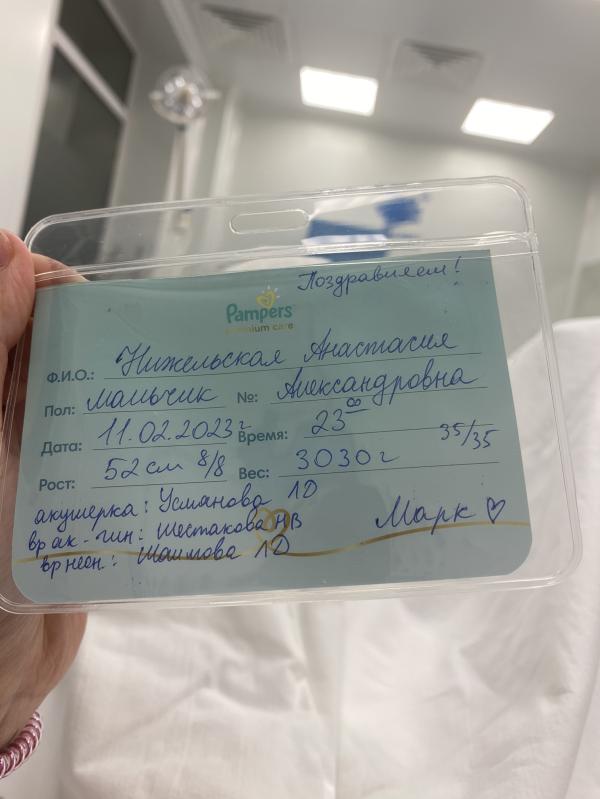 Поздравляем!
Pampers
premium care
Ф.И.О.: Нижельская Анастасия
Пол: мальчик №: Александровна
Дата: 11.02.2023г Время: 23⁰⁰ 35/35
Рост: 52 см 8/8 Вес: 3030 г
акушерка: Усманова
вр ак.-гин: Шестакова НВ
вр неон.:
Марк ♡